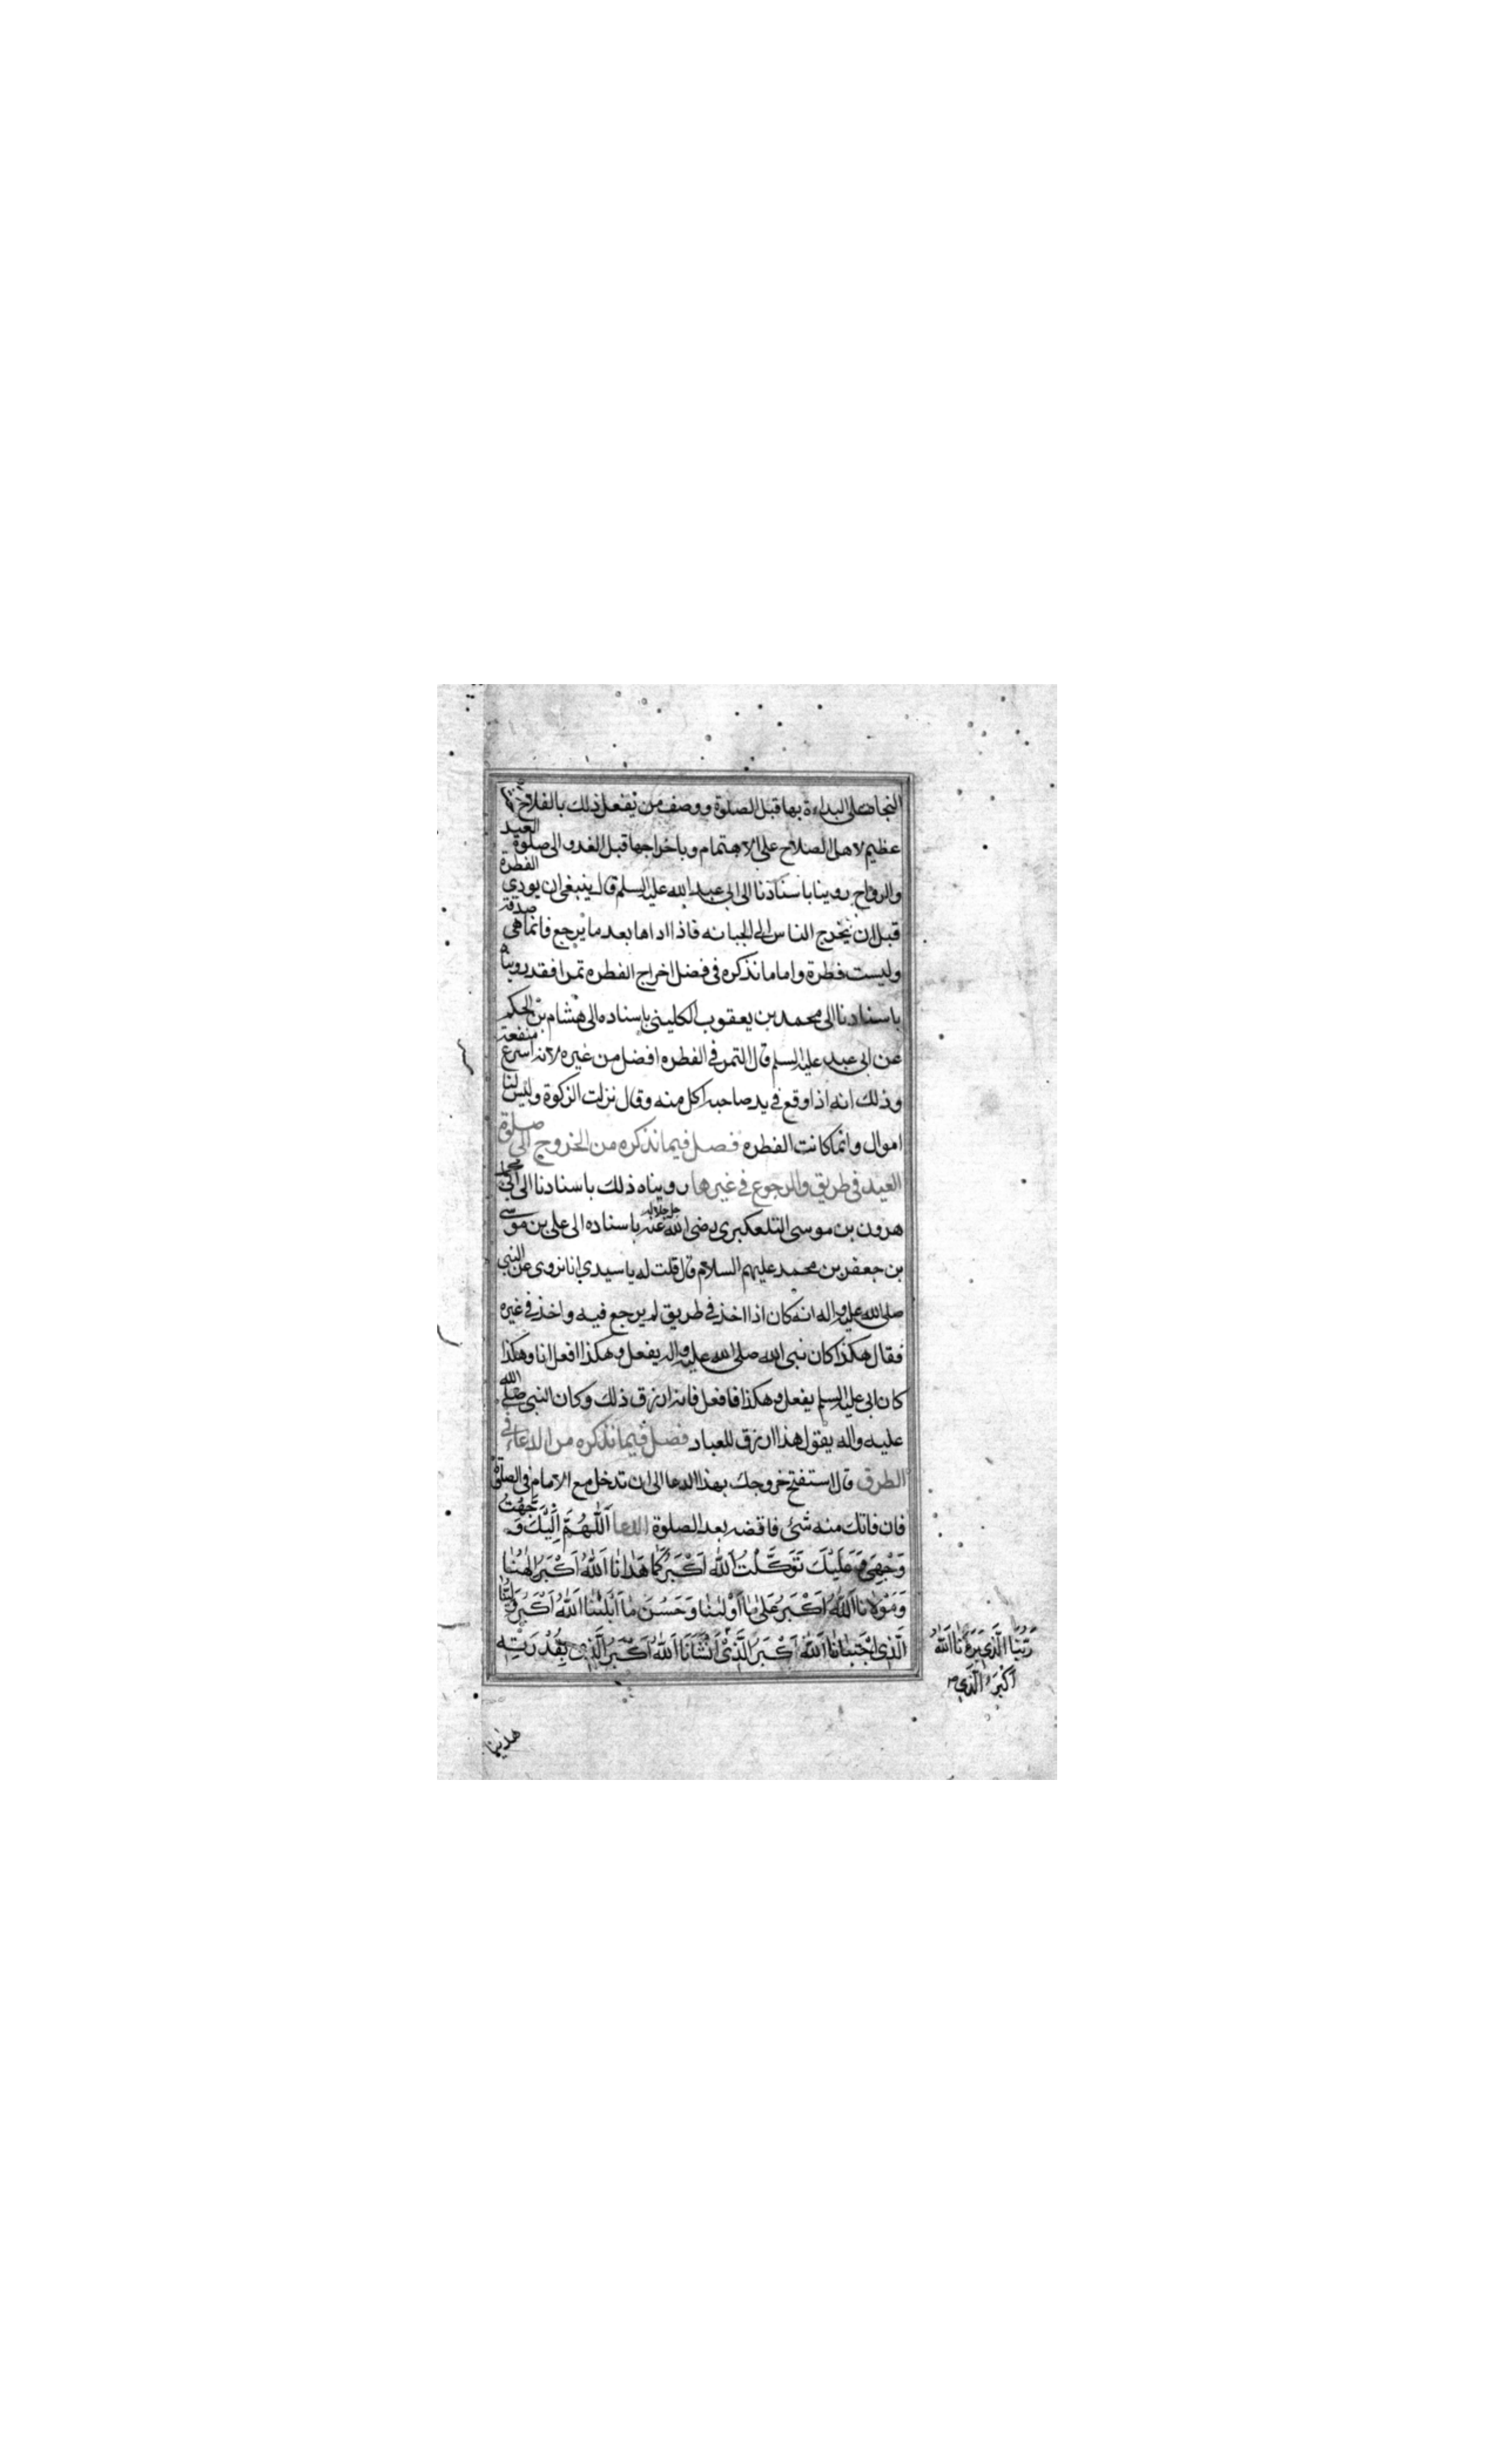 النجاه على البداءة بها قبل الصلوة ووصف من يفعل ذلك بالفلاح
عظيم لاهل الصلاح على الاهتمام وباخراجها قبل الغدو الى صلوة العيد
والرواح روينا باسنادنا الى ابى عبد الله عليه السلم قال ينبغى ان يودى الفطرة
قبل ان يخرج الناس الى الجبانه فاذا اداها بعد ما يرجع فانما هى صدقة
وليست فطرة واما ما نذكره فى فضل اخراج الفطره تمرا فقد روينا
باسنادنا الى محمد بن يعقوب الكلينى باسناده الى هشام بن الحكم
عن ابى عبد عليه السلم قال التمر فى الفطره افضل من غيره لانه اسرع منفعة
وذلك انه اذا وقع فى يد صاحبه اكل منه وقال نزلت الزكوة وليس لنا
اموال وانما كانت الفطره فصل فيما نذكره من الخروج الى صلوة
العيد فى طريق والرجوع فى غيرها روينا ذلك باسنادنا الى ابى محمد
هرون بن موسى التلعكبرى رضى الله جل جلاله عنه باسناده الى على بن موسى
بن جعفر بن محمد عليهم السلام قال قلت له يا سيدي انا نروى عن النبى
صلى الله عليه واله انه كان اذا اخذ فى طريق لم يرجع فيه واخذ فى غيره
فقال هكذا كان نبى الله صلى الله عليه واله يفعل وهكذا افعل انا وهكذا
كان ابى عليه السلم يفعل وهكذا فافعل فانه ارزق ذلك وكان النبى صلى الله
عليه واله يقول هذا ارزق للعباد فصل فيما نذكره من الدعاء فى
الطرق قال استفتح خروجك بهذا الدعا الى ان تدخل مع الامام فى الصلوة
فان فاتك منه شئ فاقضه بعد الصلوة الدعا اَللّٰهُمَّ اِلَيْكَ وَجَّهْتُ
وَجْهِيَ وَعَلَيْكَ تَوَكَّلْتُ اَللّٰهُ اَكْبَرُ كَمٰا هَدٰانٰا اَللّٰهُ اَكْبَرُ اِلٰهُنٰا
وَمَوْلٰانٰا اَللّٰهُ اَكْبَرُ عَلىٰ مٰا اَوْلٰينٰا وَحَسُنَ مٰا اَبْلٰينٰا اَللّٰهُ اَكْبَرُ وَلِيُّنٰا
اَلَّذِى اجْتَبٰانٰا اَللّٰهُ اَكْبَرُ الَّذِى اَنْشَأَنٰا اَللّٰهُ اَكْبَرُ الَّذِى بِقُدْرَتِهِ
رَبُّنَا الَّذِي بَرَأَنَا اَللّٰهُ
اَكْبَرُ الَّذِي
هدينا